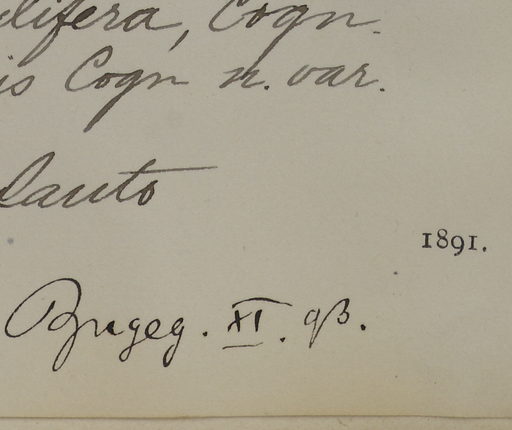 lifera, Cogn.
is Cogn n. var.
1891.
XI. 93.